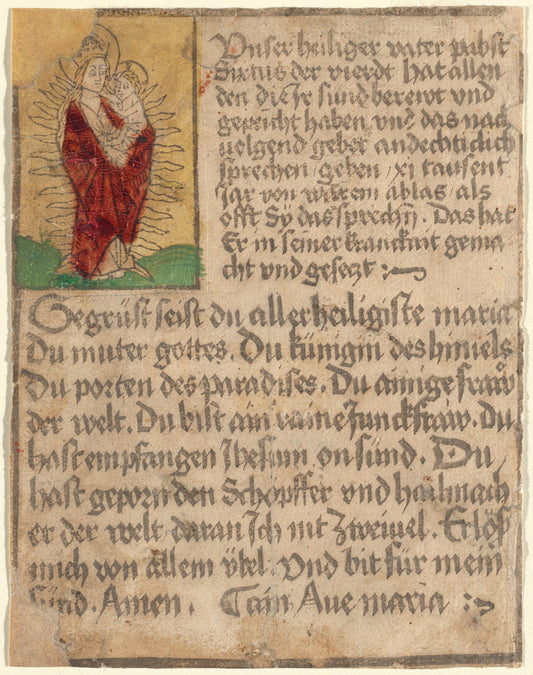 Vnser heiliger vater pabst
Sixtus der vierdt hat allen
den die Jr sund berewt vnd
gepeicht haben, vnd das nach
uolgend gebet andechticlich
sprechen, geben, xi tausent
Jar von warem ablas, als
offt Sy das sprechen. Das hat
Er in seiner kranckait gema
cht vnd gesetzt :~
Gegrüst seist du aller heiligiste maria
Du muter gottes. Du künigin des himels
Du porten des paradises. Du ainige fraw
der welt. Du bist ain raine Junckfraw. Du
hast empfangen Jhesum on sünd. Du
hast geporn den Schöpffer vnd hailmach
er der welt daran Ich nit zweiuel. Erlöß
mich von allem übel. Vnd bit für mein
sünd. Amen. Ain Aue maria :~